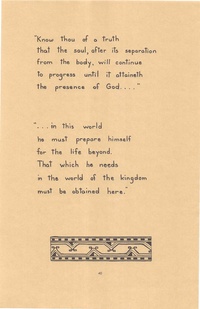 "Know thou of a truth
that the soul, after its separation
from the body, will continue
to progress until it attaineth
the presence of God...."
"...in this world
he must prepare himself
for the life beyond.
That which he needs
in the world of the kingdom
must be obtained here."